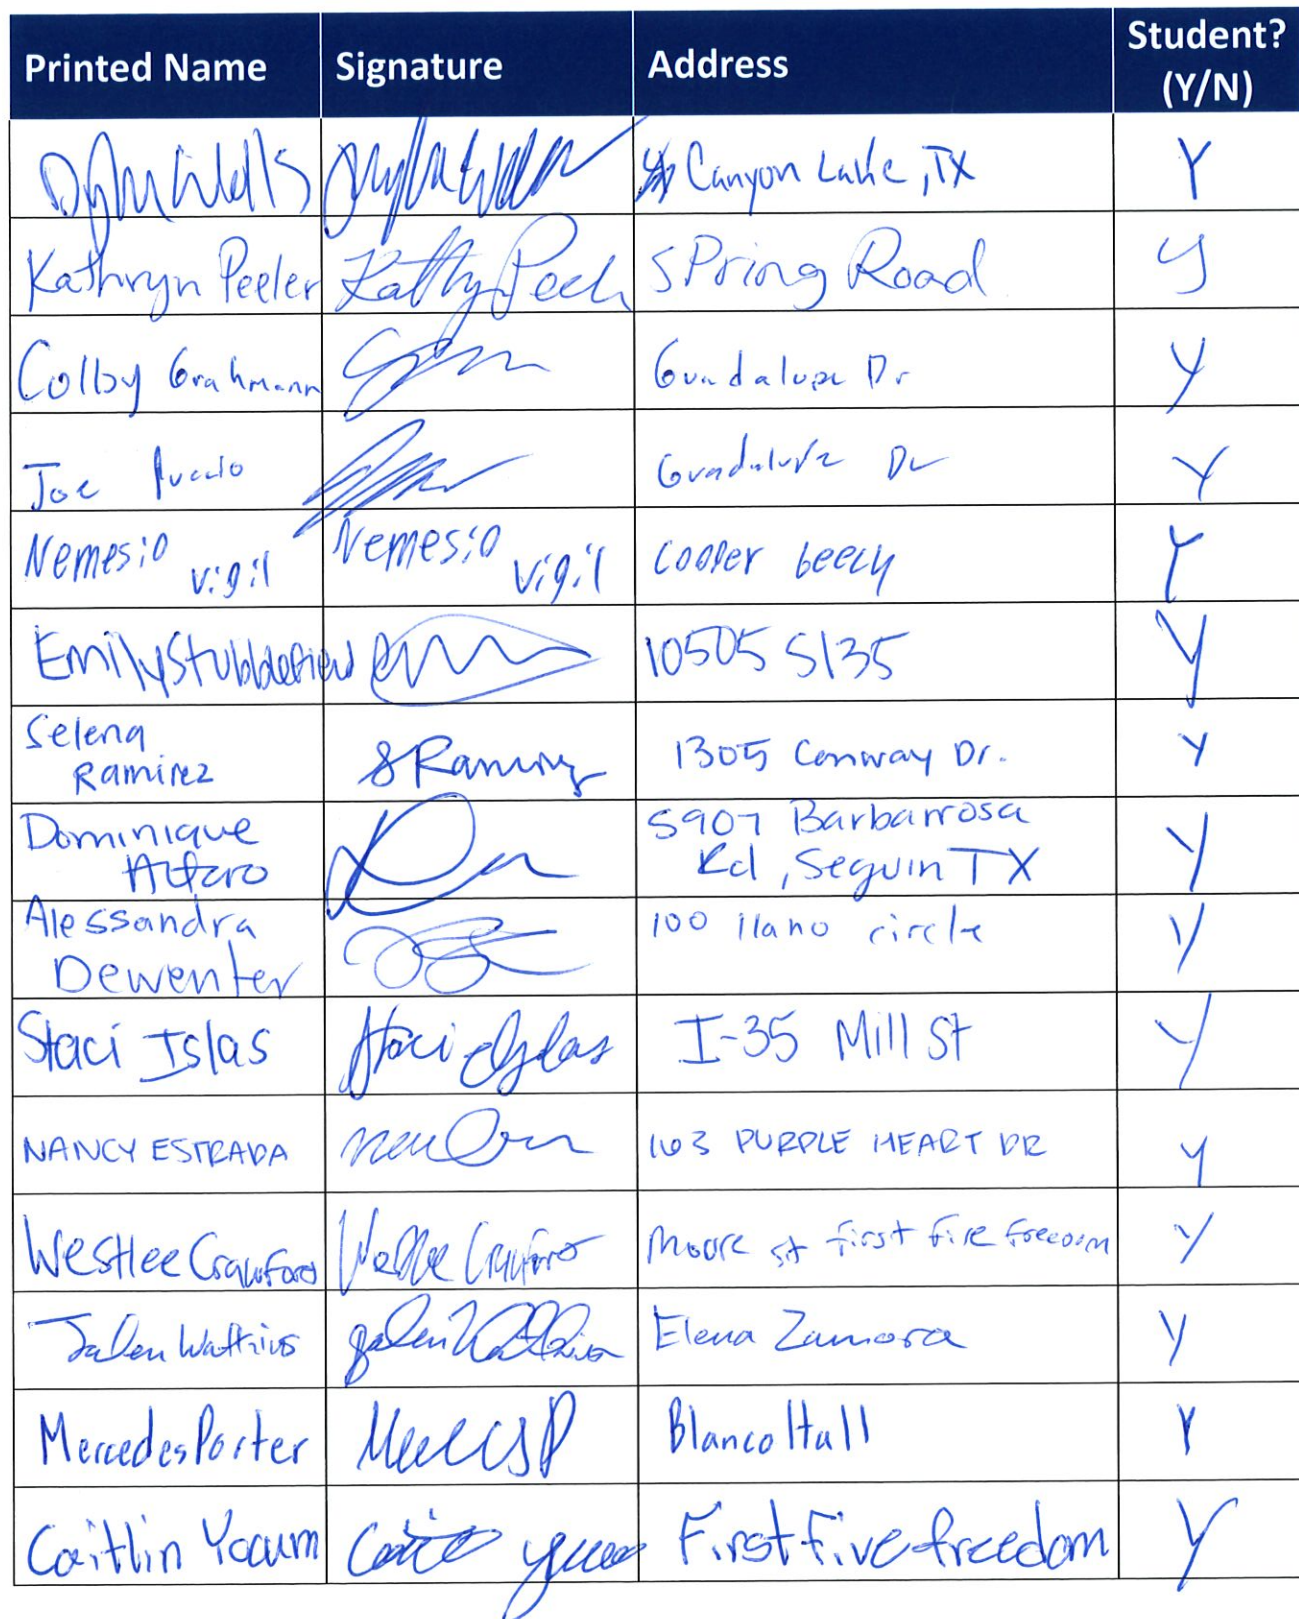 Printed Name Signature Address Student? (Y/N)
Wells Canyon Lake, TX Y
Kathryn Peeler Kathy Peel SPring Road y
Colby Grahmann Guadalupe Dr Y
Joe Puccio Guadalupe Dr Y
Nemesio vigil Nemesio vigil cooper beech Y
Emily Stubblefield 10505 S I35 Y
Selena Ramirez S Ramirez 1305 Conway Dr. Y
Dominique Alfaro 5907 Barbarrosa Rd, Seguin TX Y
Alessandra Dewenter 100 llano circle Y
Staci Islas Staci Islas I-35 Mill St Y
NANCY ESTRADA 103 PURPLE HEART DR Y
Westlee Crawford Westlee Crawford Moore st first five freedom Y
Jalen Watkins Jalen Watkins Elena Zamora Y
Mercedes Porter Blanco Hall Y
Caitlin Yocum First five freedom Y